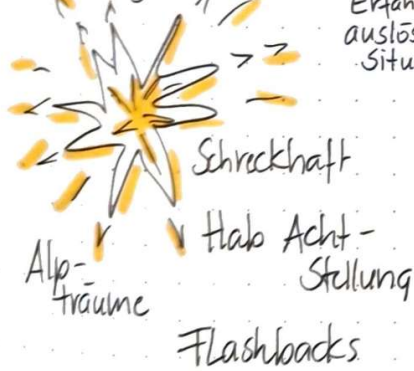 Erfah
auslös
Situ
Schreckhaft
Hab Acht-
Stellung
Alp-
träume
Flashbacks